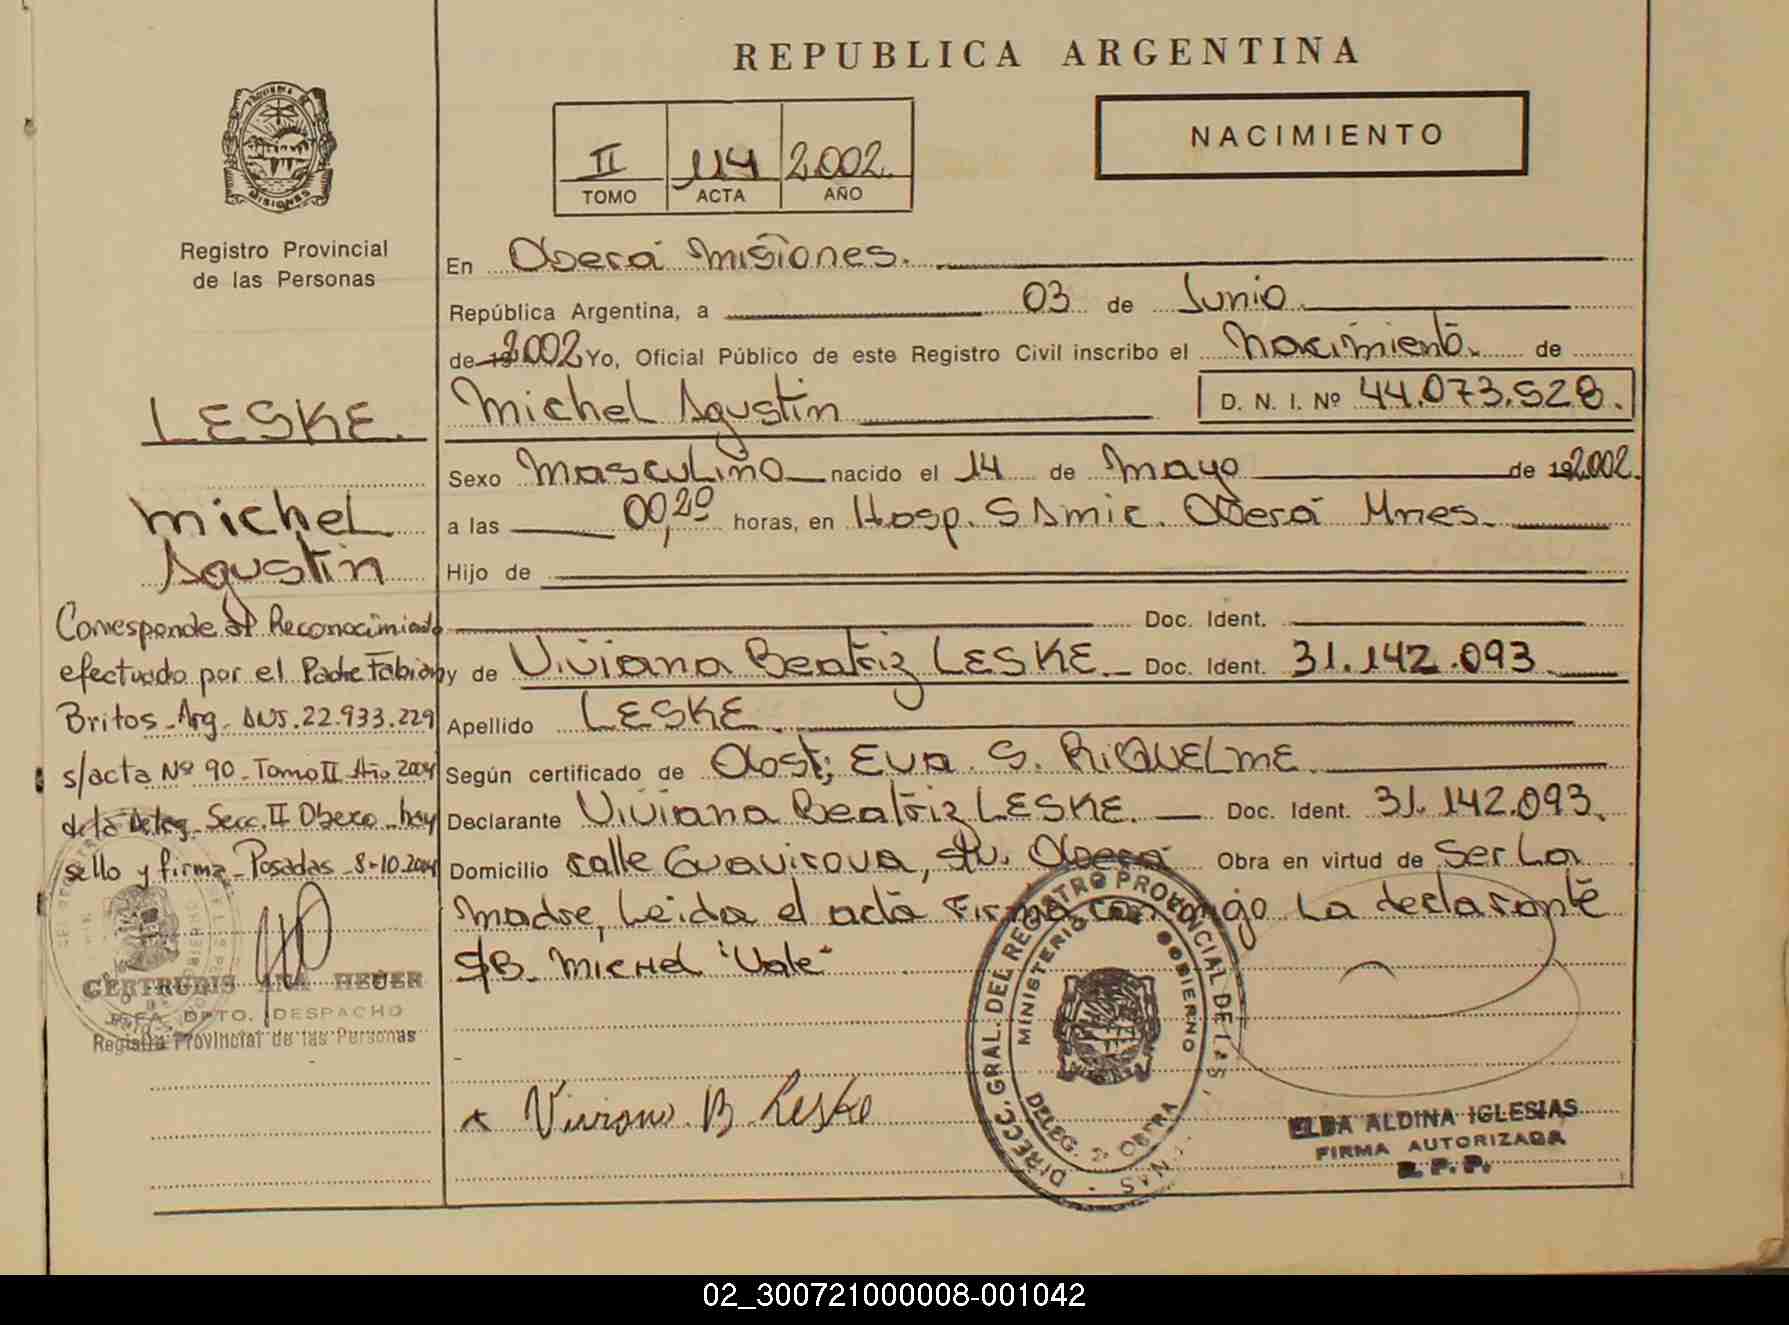 REPUBLICA ARGENTINA
NACIMIENTO
II 114 2.002.
TOMO ACTA AÑO
MISIONES
Registro Provincial
de las Personas
En Oberá Misiones.
República Argentina, a 03 de Junio.
de 2002 Yo, Oficial Público de este Registro Civil inscribo el Nacimiento. de
Michel Agustin D. N. I. Nº 44.073.528.
Sexo Masculino nacido el 14 de Mayo de 192002.
a las 00,20 horas, en Hosp. SAmic. Oberá Mnes.
Hijo de
Doc. Ident.
y de Viviana Beatriz LESKE. Doc. Ident. 31.142.093
Apellido LESKE.
Según certificado de Obst; Eva. S. RiQUELME.
Declarante Viviana Beatriz LESKE. Doc. Ident. 31.142.093.
Domicilio calle Guavirova, Oberá Obra en virtud de Ser La
Madre, Leida el acta Firma conmigo La declarante
S/B. Michel "Vale"
LESKE.
Michel
Agustin
Corresponde al Reconocimiento
efectuado por el Padre Fabian
Britos - Arg - DNI. 22.933.229
s/acta Nº 90 - Tomo II Año 2004
de la Deleg. Secc. II Obera - hoy
sello y firma - Posadas - 8-10-2004
GERTRUDIS ANA HEUER
JEFA DPTO. DESPACHO
Registro Provincial de las Personas
x Viviana B. Leske
DIRECC. GRAL. DEL REGISTRO PROVINCIAL DE LAS
MINISTERIO DE GOBIERNO
DELEG. 2 OBERA
ELBA ALDINA IGLESIAS
FIRMA AUTORIZADA
R. P. P.
02_300721000008-001042